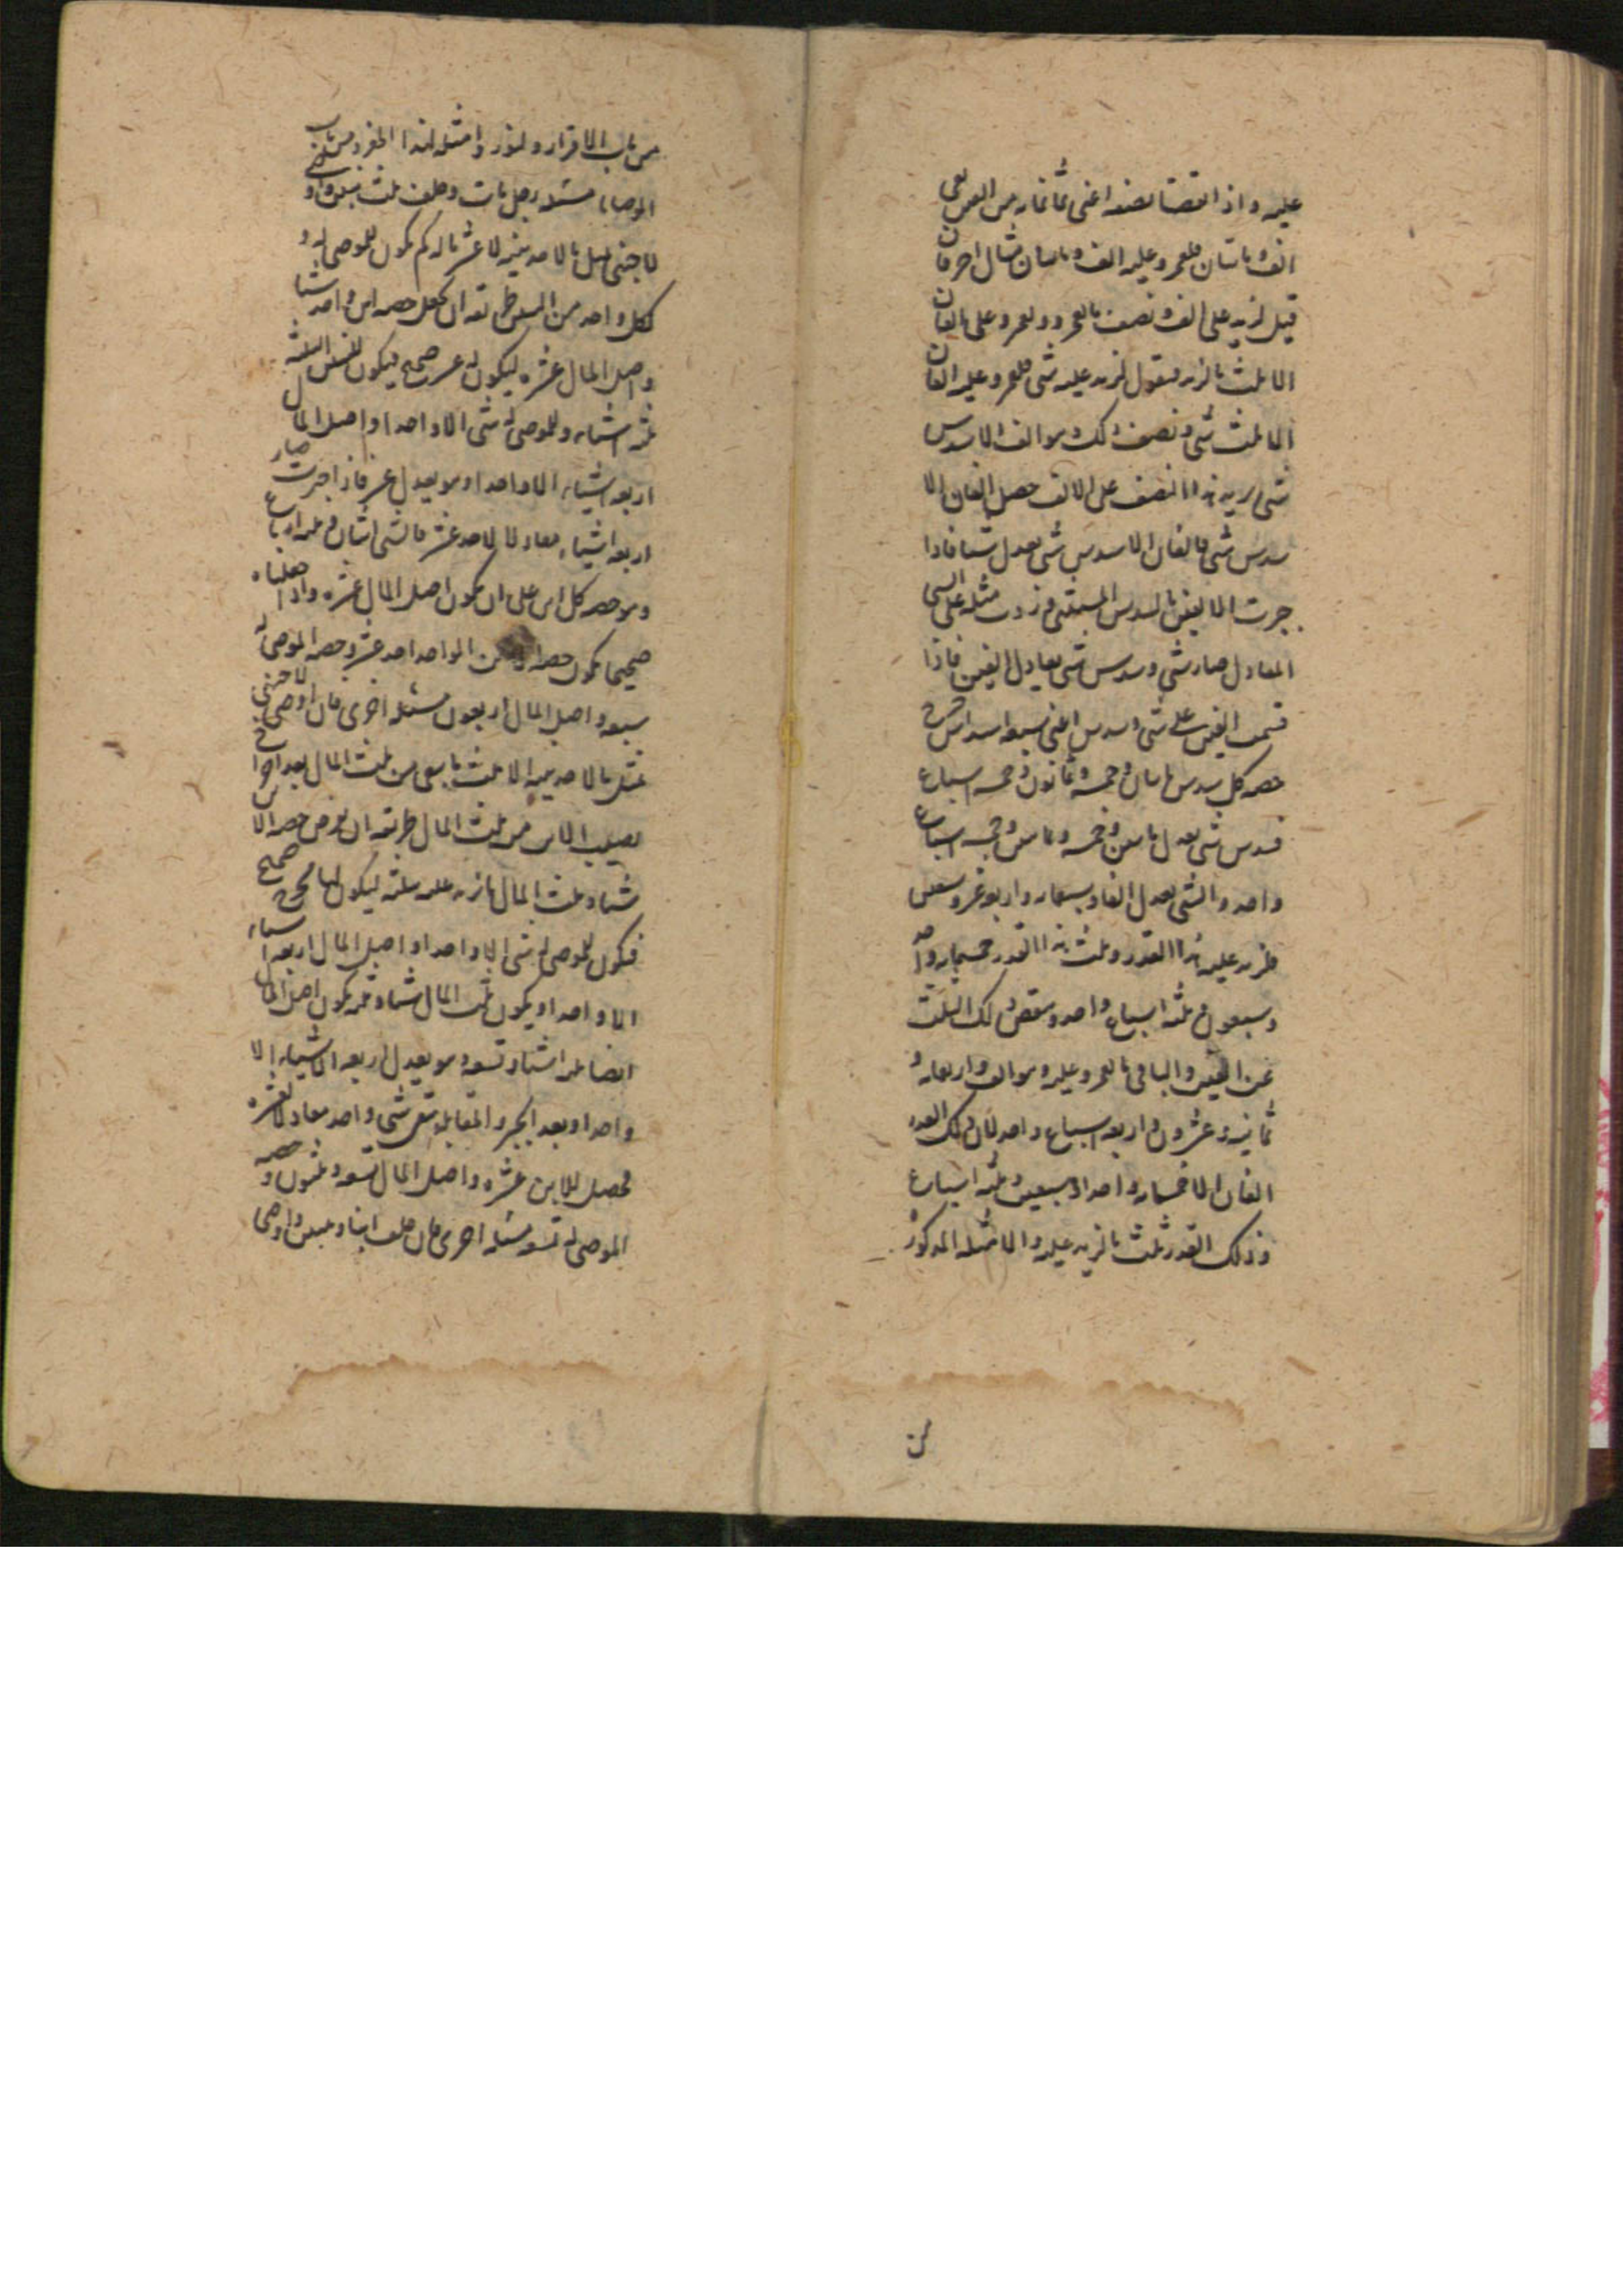 عليه و اذا نقصنا نصفه اعنى ثمانمايه من الفين بقى
الف و ماتان فلعمرو عليه الف و ماتان مثال اخر فان
قيل لزيد على الف و نصف ما لعمرو و لعمرو على الفان
الا ثلث ما لزيد فنقول لزيد عليه شى فلعمرو عليه الفان
الا ثلث شى و نصف ذلك و هو الف الا سدس
شى يزيد هذا النصف على الالف حصل الفان الا
سدس شى فالفان الا سدس شى يعدل شيئا فاذا
جبرت الالفين بالسدس المستثنى و زدت مثله على الشى
المعادل صار شى و سدس شى يعادل الفين فاذا
قسمت الفين على شى و سدس اعنى سبعه اسداس خرج
حصه كل سدس ماتان و خمسه و ثمانون و خمسه اسباع
فسدس شى يعدل ماتين و خمسه و ثمانين و خمسه اسباع
واحد و الشى يعدل الفا و سبعمايه و اربعه عشر و سبعين
فلزيد عليه هذا القدر و ثلث هذا القدر خمسمايه و احد
و سبعون و ثلثه اسباع واحد و ينقص ذلك الثلث
عن الفين و الباقى ما لعمرو عليه و هو الف و اربعمايه و
ثمانيه و عشرون و اربعه اسباع واحد لان ذلك العدد
الفان الا خمسمايه و احدا و سبعين و ثلثه اسباع
و ذلك القدر ثلث ما لزيد عليه و الامثله المذكوره
من
من باب الاقرار و لنورد امثله لهذا المفرد من باب
الوصايا مسئله رجل مات و خلف ثلث بنين و اوصى
لاجنبى بمثل ما لاحد بنيه الا عشر ماله كم يكون للموصى له و
لكل واحد من البنين طريقه ان يجعل حصه ابن واحد شيئا
و اصل المال عشره ليكون له عشر صحيح فيكون للبنين الثلثه
ثلثه اشياء و للموصى له شى الا واحدا و اصل المال
اربعه اشياء الا واحدا و هو يعدل عشره فاذا جبرت صار
اربعه اشياء معادلا لاحد عشر فالشى اثنان و ثلثه ارباع
و هو حصه كل ابن على ان يكون اصل المال عشره و اذا جعلناه
صحيحا يكون حصه الابن الواحد احد عشر و حصه الموصى له
سبعه و اصل المال اربعون مسئله اخرى فان اوصى لاجنبى
بمثل ما لاحد بنيه الا ثلث ما بقى من ثلث المال بعد اخراج
نصيب الابن من ثلث المال طريقه ان نفرض حصه الابن
شيئا و ثلث المال ما زيد عليه ثلثه ليكون لها مخرج صحيح
فيكون للموصى له شى الا واحدا و اصل المال اربعه اشياء
الا واحدا و يكون ثلث المال شيئا و ثلثه يكون اصل المال
ايضا ثلثه اشيا و تسعه و هو يعدل اربعه الاشياء الا
واحدا و بعد الجبر و المقابله بقى شى واحد معادلا لعشره
فحصل للابن عشره و اصل المال تسعه و ثلثون و حصه
الموصى له تسعه مسئله اخرى فان خلف ابنا و بنتين و اوصى